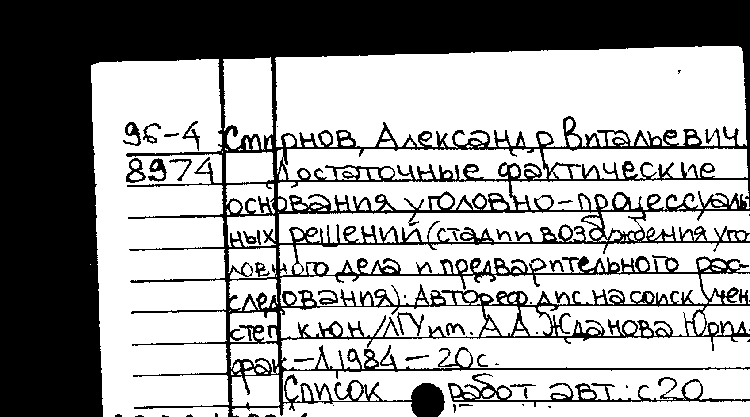 96-4 Смирнов, Александр Витальевич.
8974 Достаточные фактические
основания уголовно-процессуаль
ных решений (стадии возбуждения уго
ловного дела и предварительного рас-
следования): Автореф. дис. на соиск учен
степ к.юн./ЛГУ им. А.А. Жданова Юрид.
фак. - Л, 1984 - 20с.
Список работ авт.: с 20